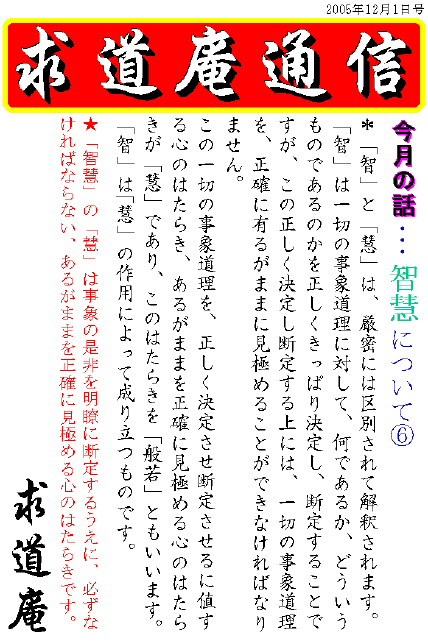 2005年12月1日号
求道庵通信
今月の話…智慧について⑥
＊「智」と「慧」は、厳密には区別されて解釈されます。
「智」は一切の事象道理に対して、何であるか、どういう
ものであるのかを正しくきっぱり決定し、断定することで
すが、この正しく決定し断定する上には、一切の事象道理
を、正確に有るがままに見極めることができなければなり
ません。
この一切の事象道理を、正しく決定させ断定させるに値す
る心のはたらき、あるがままを正確に見極める心のはたら
きが「慧」であり、このはたらきを「般若」ともいいます。
「智」は「慧」の作用によって成り立つものです。
★「智慧」の「慧」は事象の是非を明瞭に断定するうえに、必ずな
ければならない、あるがままを正確に見極める心のはたらきです。
求道庵